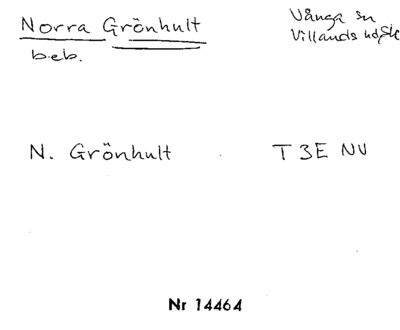 Norra Grönhult
beb.
Vånga sn
Villands hd, Sk
N. Grönhult T 3E NV
Nr 14464